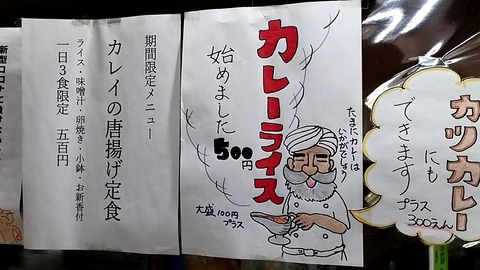 カツカレー
にも
できます
プラス
300えん
カレーライス
始めました
500円
たまにカレーは
いかがでしょう
大盛100円
プラス
期間限定メニュー
カレイの唐揚げ定食
ライス・味噌汁・卵焼き・小鉢・お新香付
一日3食限定 五百円